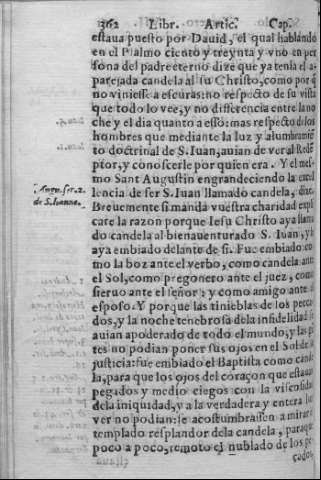 362 Libr. Artic. Cap.
estaua puesto por Dauid, el qual hablando
en el Psalmo ciento y treynta y vno en per
sona del padre eterno dize que ya tenia el a-
parejada candela al su Christo, como por q̃
no viniesse a escuras: no respecto de su vista
que todo lo vee, y no differencia entre la no
che y el dia quanto a esso: mas respecto de los
hombres que mediante la luz y alumbramiẽ
to doctrinal de S. Iuan, auian de ver al Redẽ
ptor, y conoscerle por quien era. Y el mes-
mo Sant Augustin engrandeciendo la exce
lencia de ser S. Iuan llamado candela, dize.
Augu. ser. 2.
de S. Ioanne.
Breuemente si manda vuestra charidad expli
care la razon porque Iesu Christo aya llama
do candela al bienauenturado S. Iuan, y le
aya embiado delante de si. Fue embiado co
mo la boz ante el verbo, como candela ante
el Sol, como pregonero ante el juez, como
sieruo ante el señor: y como amigo ante el
esposo. Y porque las tinieblas de los pecca
dos, y la noche tenebrosa dela infidelidad se
auian apoderado de todo el mundo, y las gẽ
tes no podian poner sus ojos en el Sol de la
justicia: fue embiado el Baptista como cande
la, para que los ojos del coraçon que estauan
pegados y medio ciegos con la viscosidad
dela iniquidad, y a la verdadera y entera luz
ver no podian: se acostumbrassen a mirar el
templado resplandor dela candela, paraque
poco a poco, remoto el nublado de los pe